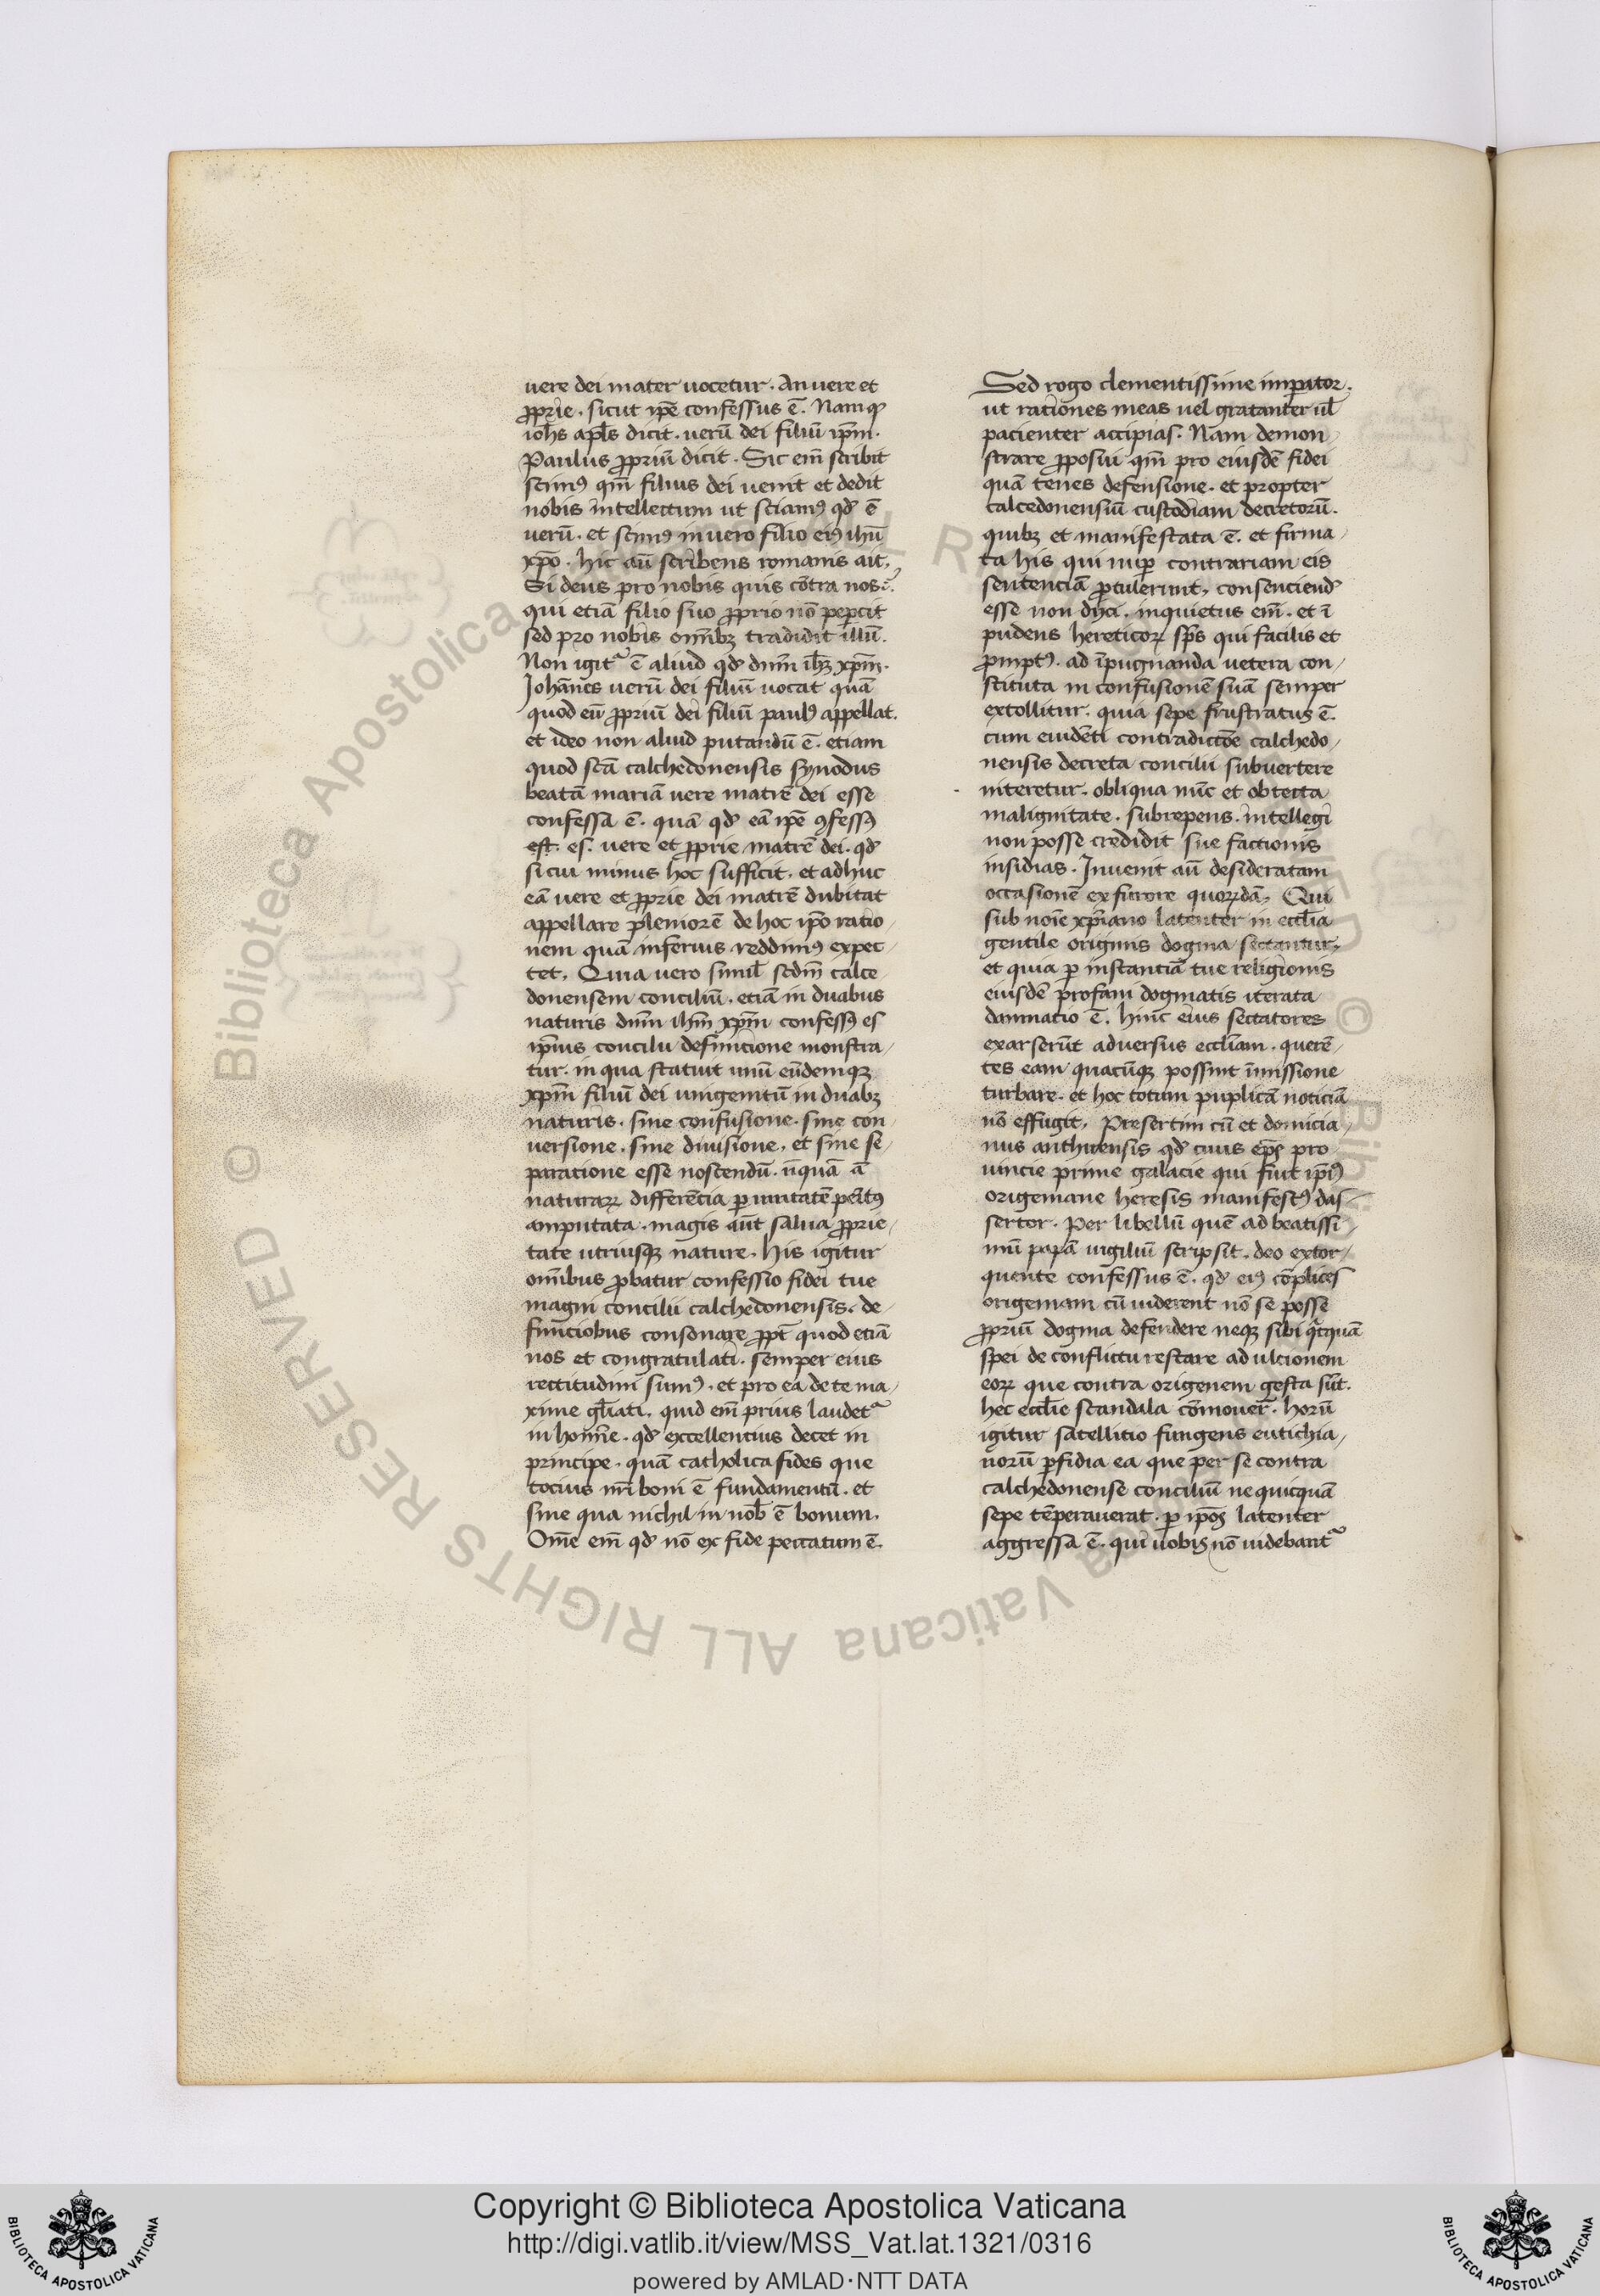 uere dei mater uocetur. An uere et
ꝓprie. sicut ip̄e confessus ē. Namqꝫ
ioħs apl̄s dicit. uerū dei filiū ip̄m.
Paulus ꝓpriū dicit. Sic em̄ scribit
scimꝰ qm̄ filius dei uenit et dedit
nobis intellectum ut sciamꝰ qd̓ ē
uerū. et simꝰ in uero filio eiꝰ ihū
xp̄o. hic aū scribens romanis ait.
Si deus pro nobis quis cōtra nos?
qui etiā filio suo ꝓprio nō peꝑcit
sed pro nobis om̄ibꝫ tradidit illū.
Non igit᷑ ē aliud qd̓ dn̄m ih̄ꝫ xp̄m.
Johānes uerū dei filiū uocat quā
quod eū ꝓpriū dei filiū paulꝰ appellat.
et ideo non aliud putandū ē. etiam
quod scā calchedonensis synodus
beatā mariā uere matrē dei esse
confessa ē. quā qd̓ eā ip̄e ꝯfessꝰ
est. es. uere et ꝓprie matrē dei. qd̓
si cui minus hoc sufficit. et adhuc
eā uere et ꝓprie dei matrē dubitat
appellare pleniorē de hoc ip̄o ratio
nem quā inferius reddimꝰ expec
tet. Quia uero simil̄ scdm̄ calce
donensem conciliū. etiā in duabus
naturis dn̄m ihm̄ xp̄m confessꝰ es
ip̄ius concilii definicione monstra
tur. in qua statuit unū eūdemqꝫ
xp̄m filiū dei unigenitū in duabꝫ
naturis. sine confusione. sine con
uersione. sine diuisione. et sine se
paratione esse noscendū. nūquā
naturaꝝ differēcia ꝑ unitatē penitꝰ
amputata. magis aūt salua ꝓprie
tate utriusqꝫ nature. His igitur
om̄ibus ꝓbatur confessio fidei tue
magni concilii calchedonensis. de
finiciobus consonare ꝓpt̄ quod etiā
nos et congratulati. semper eius
rectitudini sumꝰ. et pro ea de te ma
xime gl̄iati. quid em̄ prius laudet᷑
in homīe. qd̓ excellentius decet in
principe. quā catholica fides que
tocius nr̄i boni ē fundamentū. et
sine qua nichil in nob̄ ē bonum.
Om̄e em̄ qd̓ nō ex fide peccatum ē.
Sed rogo clementissime imperator.
ut rationes meas uel gratanter ul̄
pacienter accipias. Nam demon
strare ꝓposui qm̄ pro eiusdē fidei
quā tenes defensione. et propter
calcedonensiū custodiam decretorū.
quibꝫ et manifestata ē. et firma
ta his qui nuꝑ contrariam eis
sentenciā ꝓtulerunt, consenciend̓
esse non dixi. inquietus em̄. et ī
pudens hereticoꝝ sp̄s qui facilis et
ꝓmptꝰ. ad īpugnanda uetera con
stituta in confusionē suā semper
extollitur. quia sepe frustratus ē.
cum euidēti contradictōe calchedo
nensis decreta concilii subuertere
niteretur. obliqua nūc et obtecta
malignitate. subrepens. intellegi
non posse credidit sue factionis
insidias. Inuenit aū desideratam
occasionē ex furore quorūdā. Qui
sub noīe xp̄iano latenter in eccl̄ia
gentile originis dogma sectantur.
et quia ꝑ instanciā tue religionis
eiusdē profani dogmatis iterata
dannatio ē. hinc eius sectatores
exarserūt aduersus eccl̄iam. querē
tes eam quacūqꝫ possint īmissione
turbare. et hoc totum puplicā noticiā
nō effugit. Presertim cū et domicia
nus anthirensis qd̓ ciuis ep̄s pro
uincie prime galacie qui fuit ip̄iꝰ
origeniane heresis manifestꝰ das
sertor. Per libellū quē ad beatissi
mū papā uigiliū scripsit. deo extor
quente confessus ē. qd̓ eiꝰ cōplices
origeniani cū uiderent nō se posse
ꝓpriū dogma defendere neqꝫ sibi qͥcquā
spei de conflictu restare ad ulcionem
eoꝝ que contra origenem gesta sūt.
hec eccl̄ie scandala cōmouer̄. Horū
igitur satellitio fungens eutichia
norū ꝑfidia ea que per se contra
calchedonense conciliū nequicquā
sepe tēperauerat. ꝑ ip̄os latenter
aggressa ē. qui uobis nō uidebant᷑
Copyright © Biblioteca Apostolica Vaticana
http://digi.vatlib.it/view/MSS_Vat.lat.1321/0316
powered by AMLAD·NTT DATA
BIBLIOTECA APOSTOLICA VATICANA
BIBLIOTECA APOSTOLICA VATICANA
© Biblioteca Apostolica Vaticana ALL RIGHTS RESERVED